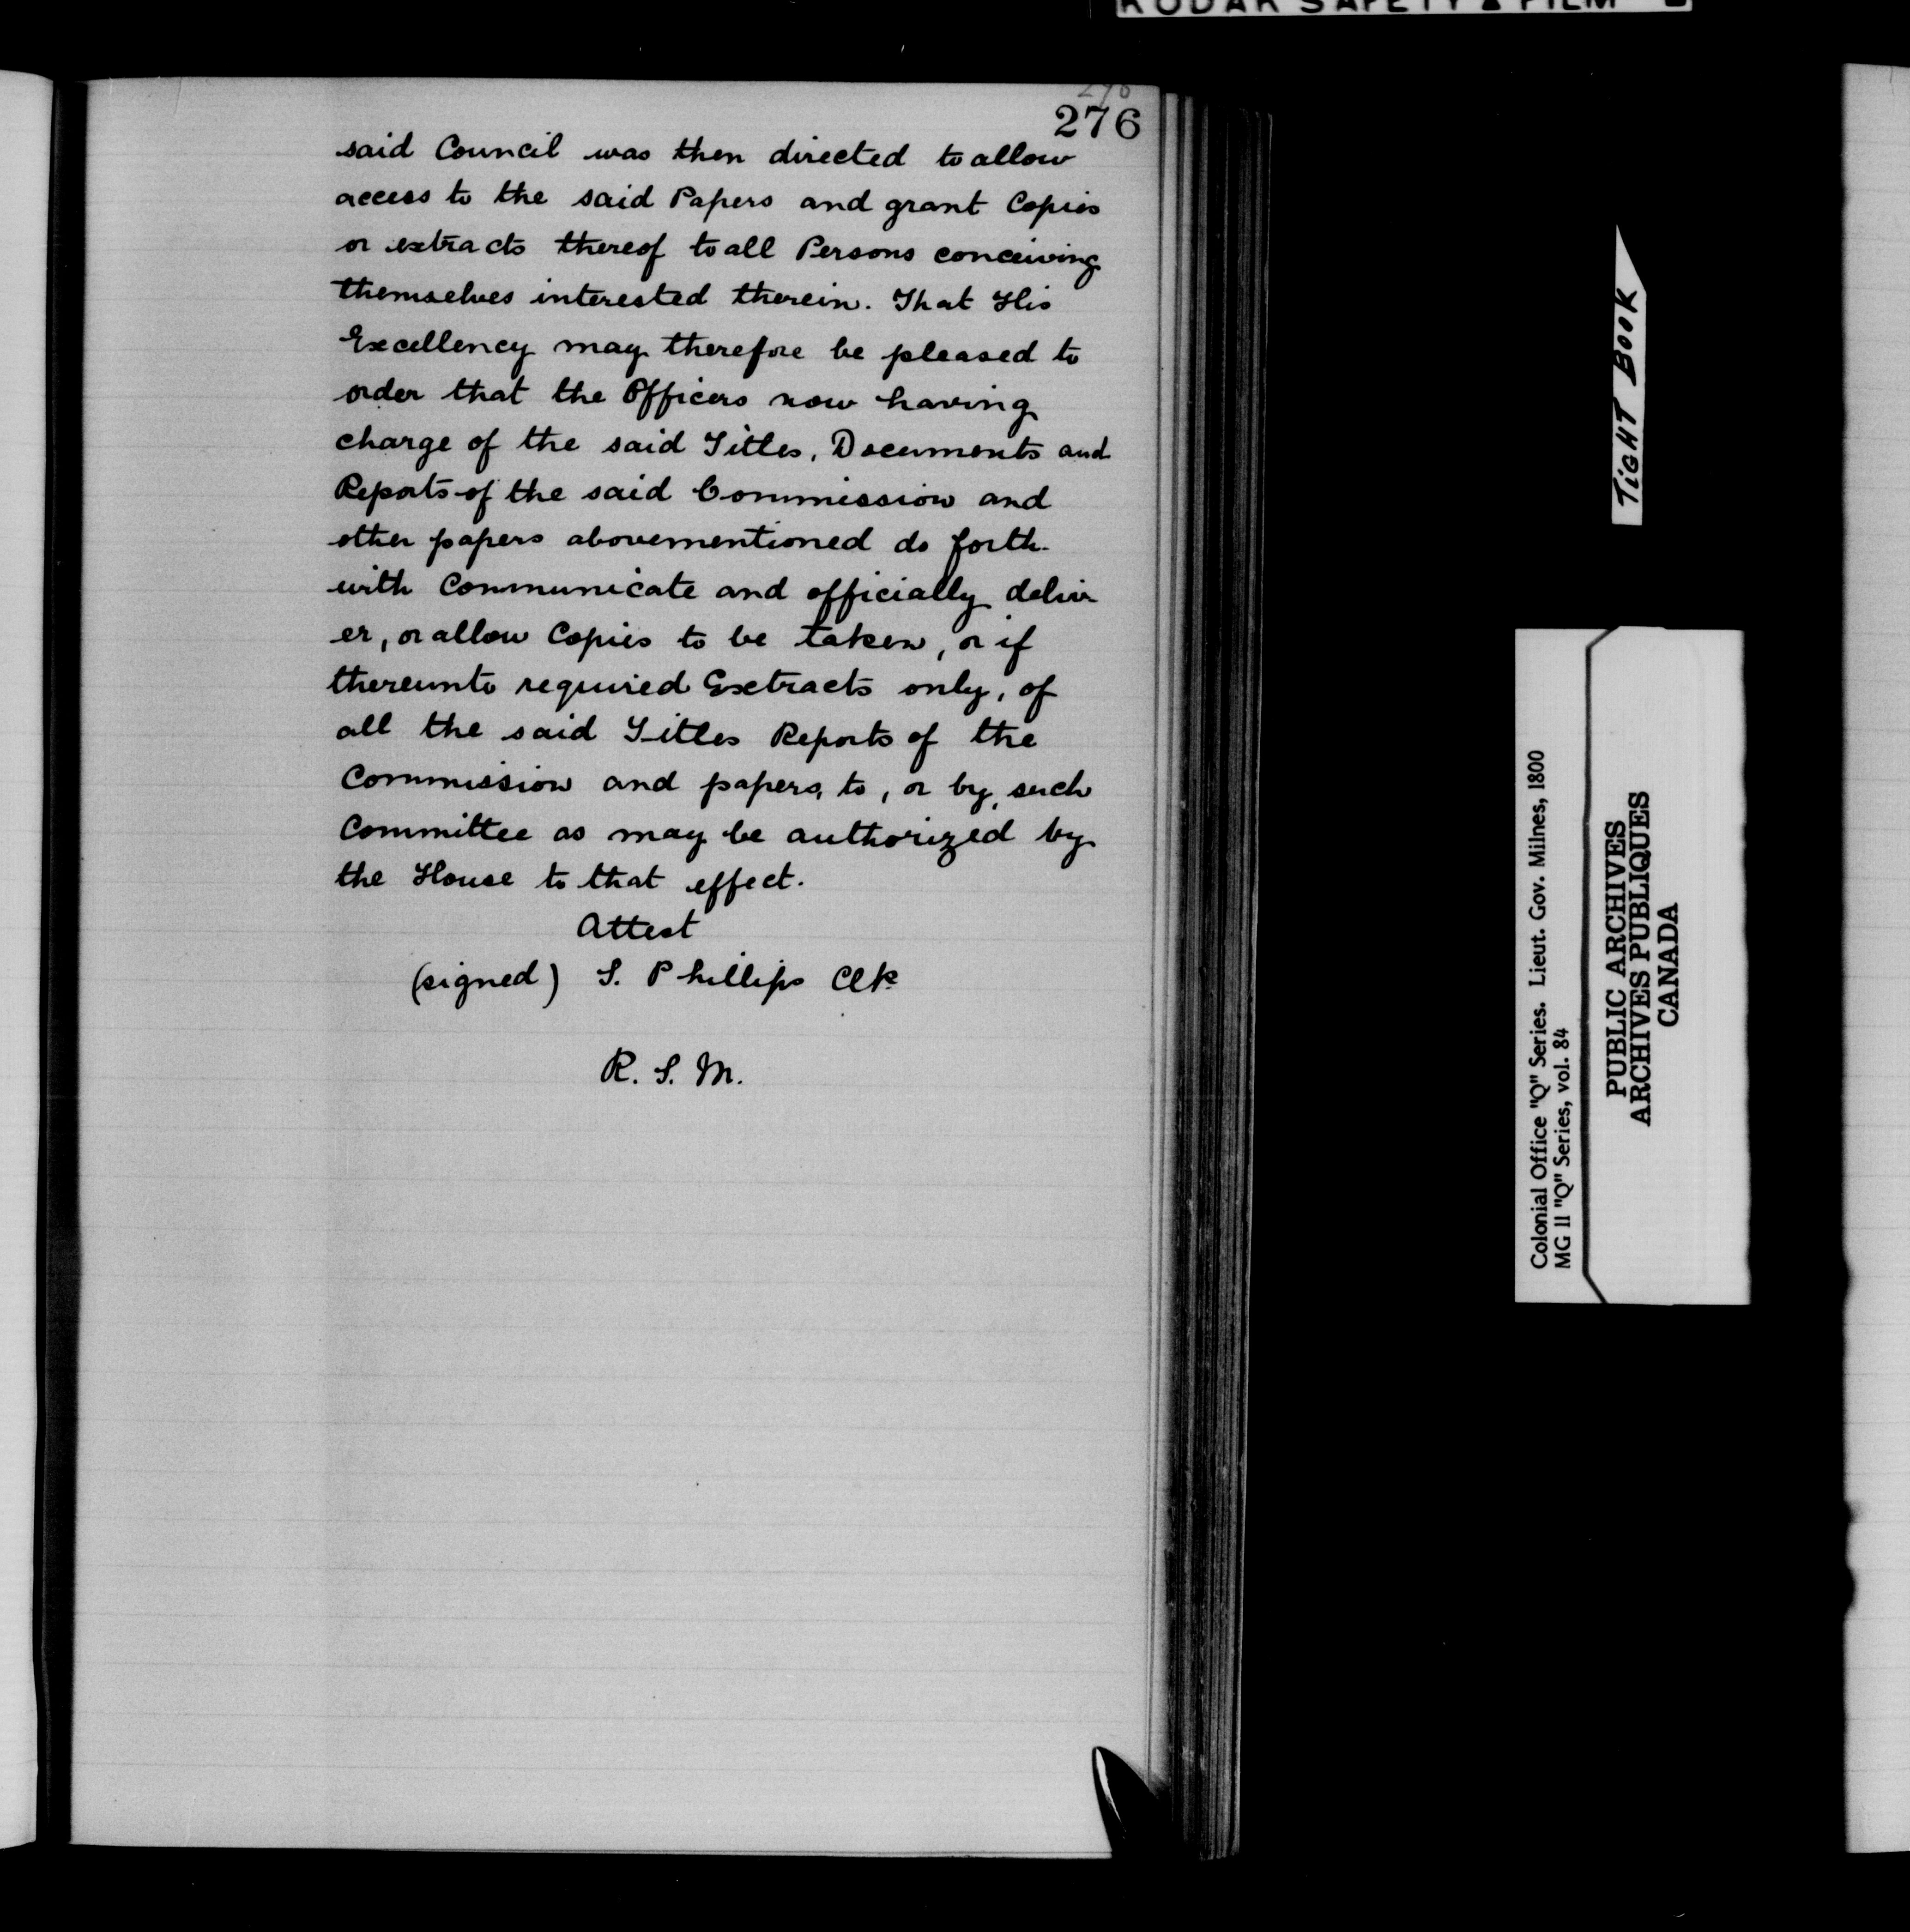 KODAK SAFETY FILM
276
said Council was then directed to allow
access to the said Papers and grant Copies
or extracts thereof to all Persons conceiving
themselves interested therein. That His
Excellency may therefore be pleased to
order that the Officers now having
charge of the said Titles, Documents and
Reports of the said Commission and
other papers abovementioned do forth-
with Communicate and officially deliv
er, or allow Copies to be taken, or if
thereunto required Extracts only, of
all the said Titles Reports of the
Commission and papers, to, or by, such
Committee as may be authorized by
the House to that effect.
Attest
(signed) S. Phillips Clk
R. S. M.
TIGHT BOOK
Colonial Office "Q" Series. Lieut. Gov. Milnes, 1800
MG 11 "Q" Series, vol. 84
PUBLIC ARCHIVES
ARCHIVES PUBLIQUES
CANADA